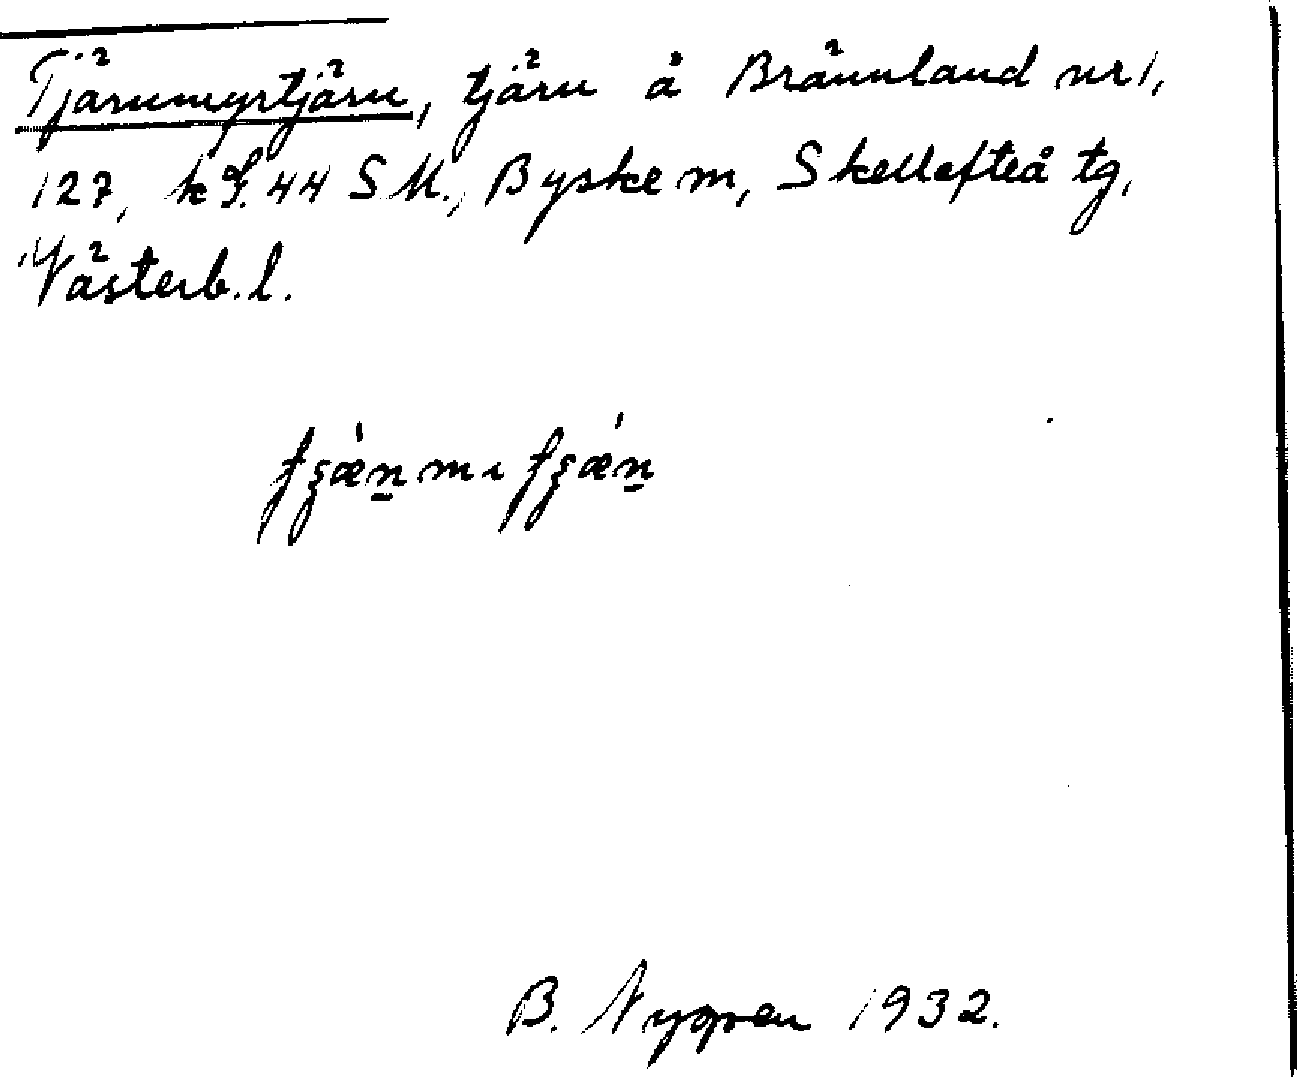 Tjärnmyrtjärn, tjärn å Brännland nr 1,
127, k J. 44 S M., Byske m, Skellefteå tg,
Västerb. l.
B. Nygren 1932.